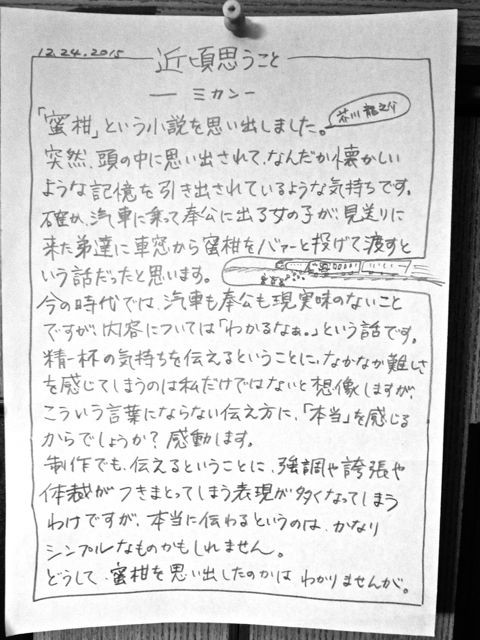 12.24.2015
近頃思うこと
ーミカンー
「蜜柑」という小説を思い出しました。
芥川龍之介
突然、頭の中に思い出されて、なんだか懐かしい
ような記憶を引き出されているような気持ちです。
確か、汽車に乗って奉公に出る女の子が見送りに
来た弟達に車窓から蜜柑をバァーと投げて渡すと
いう話だったと思います。
今の時代では、汽車も奉公も現実味のないこと
ですが、内容については「わかるなぁ。」という話です。
精一杯の気持ちを伝えるということに、なかなか難しさ
を感じてしまうのは私だけではないと想像しますが、
こういう言葉にならない伝え方に、「本当」を感じる
からでしょうか?感動します。
制作でも、伝えるということに、強調や誇張や
体裁がつきまとってしまう表現が多くなってしまう
わけですが、本当に伝わるというのは、かなり
シンプルなものかもしれません。
どうして、蜜柑を思い出したのかはわかりませんが。